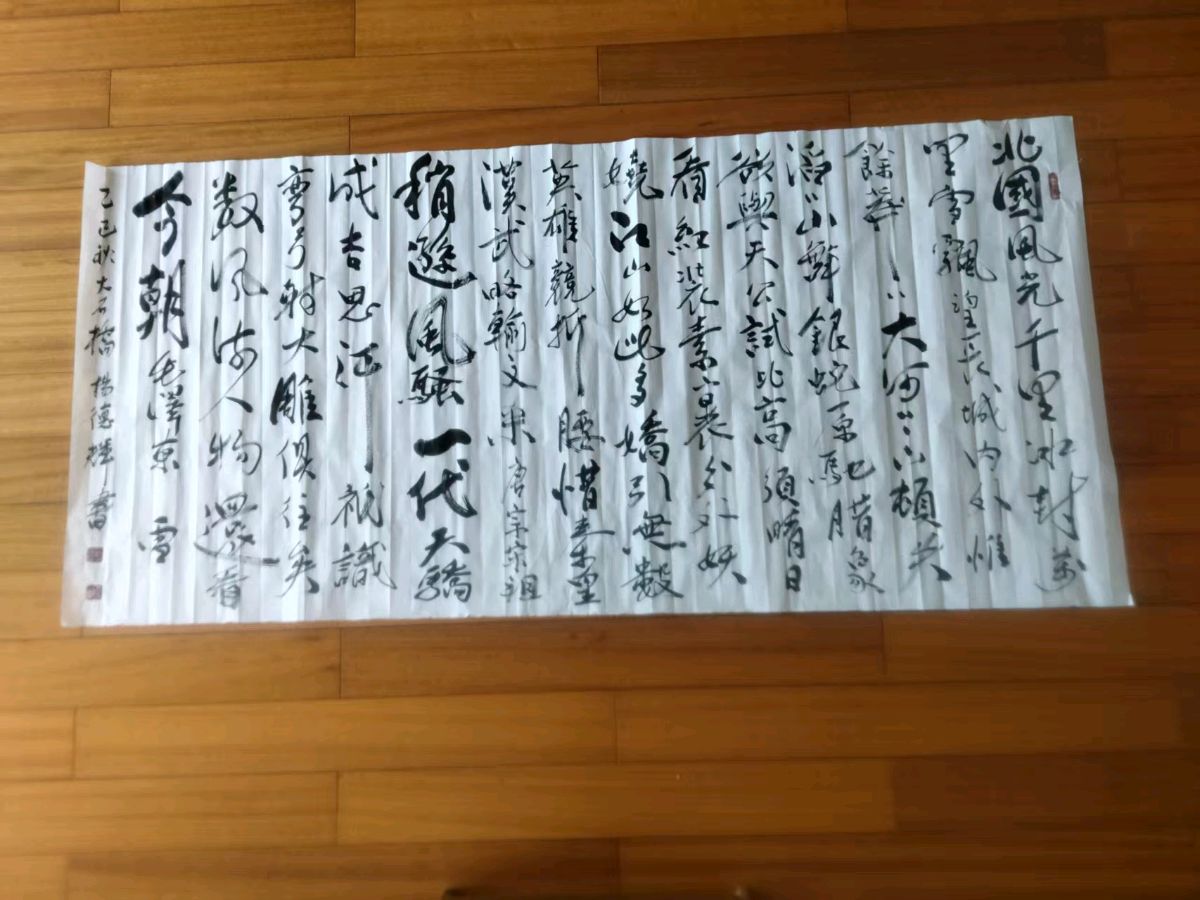 北國風光千里冰封萬
里雪飄望長城內外惟
餘莽〻大河上下頓失
滔〻山舞銀蛇原馳腊象
欲與天公試比高須晴日
看紅裝素裹分外妖
嬈江山如此多嬌引無數
英雄競折腰惜秦皇
漢武略輸文采唐宗宋祖
稍遜風騷一代天驕
成吉思汗祇識
彎弓射大雕俱往矣
數風流人物還看
今朝毛澤東 雪
乙巳秋大石橋楊德輝書